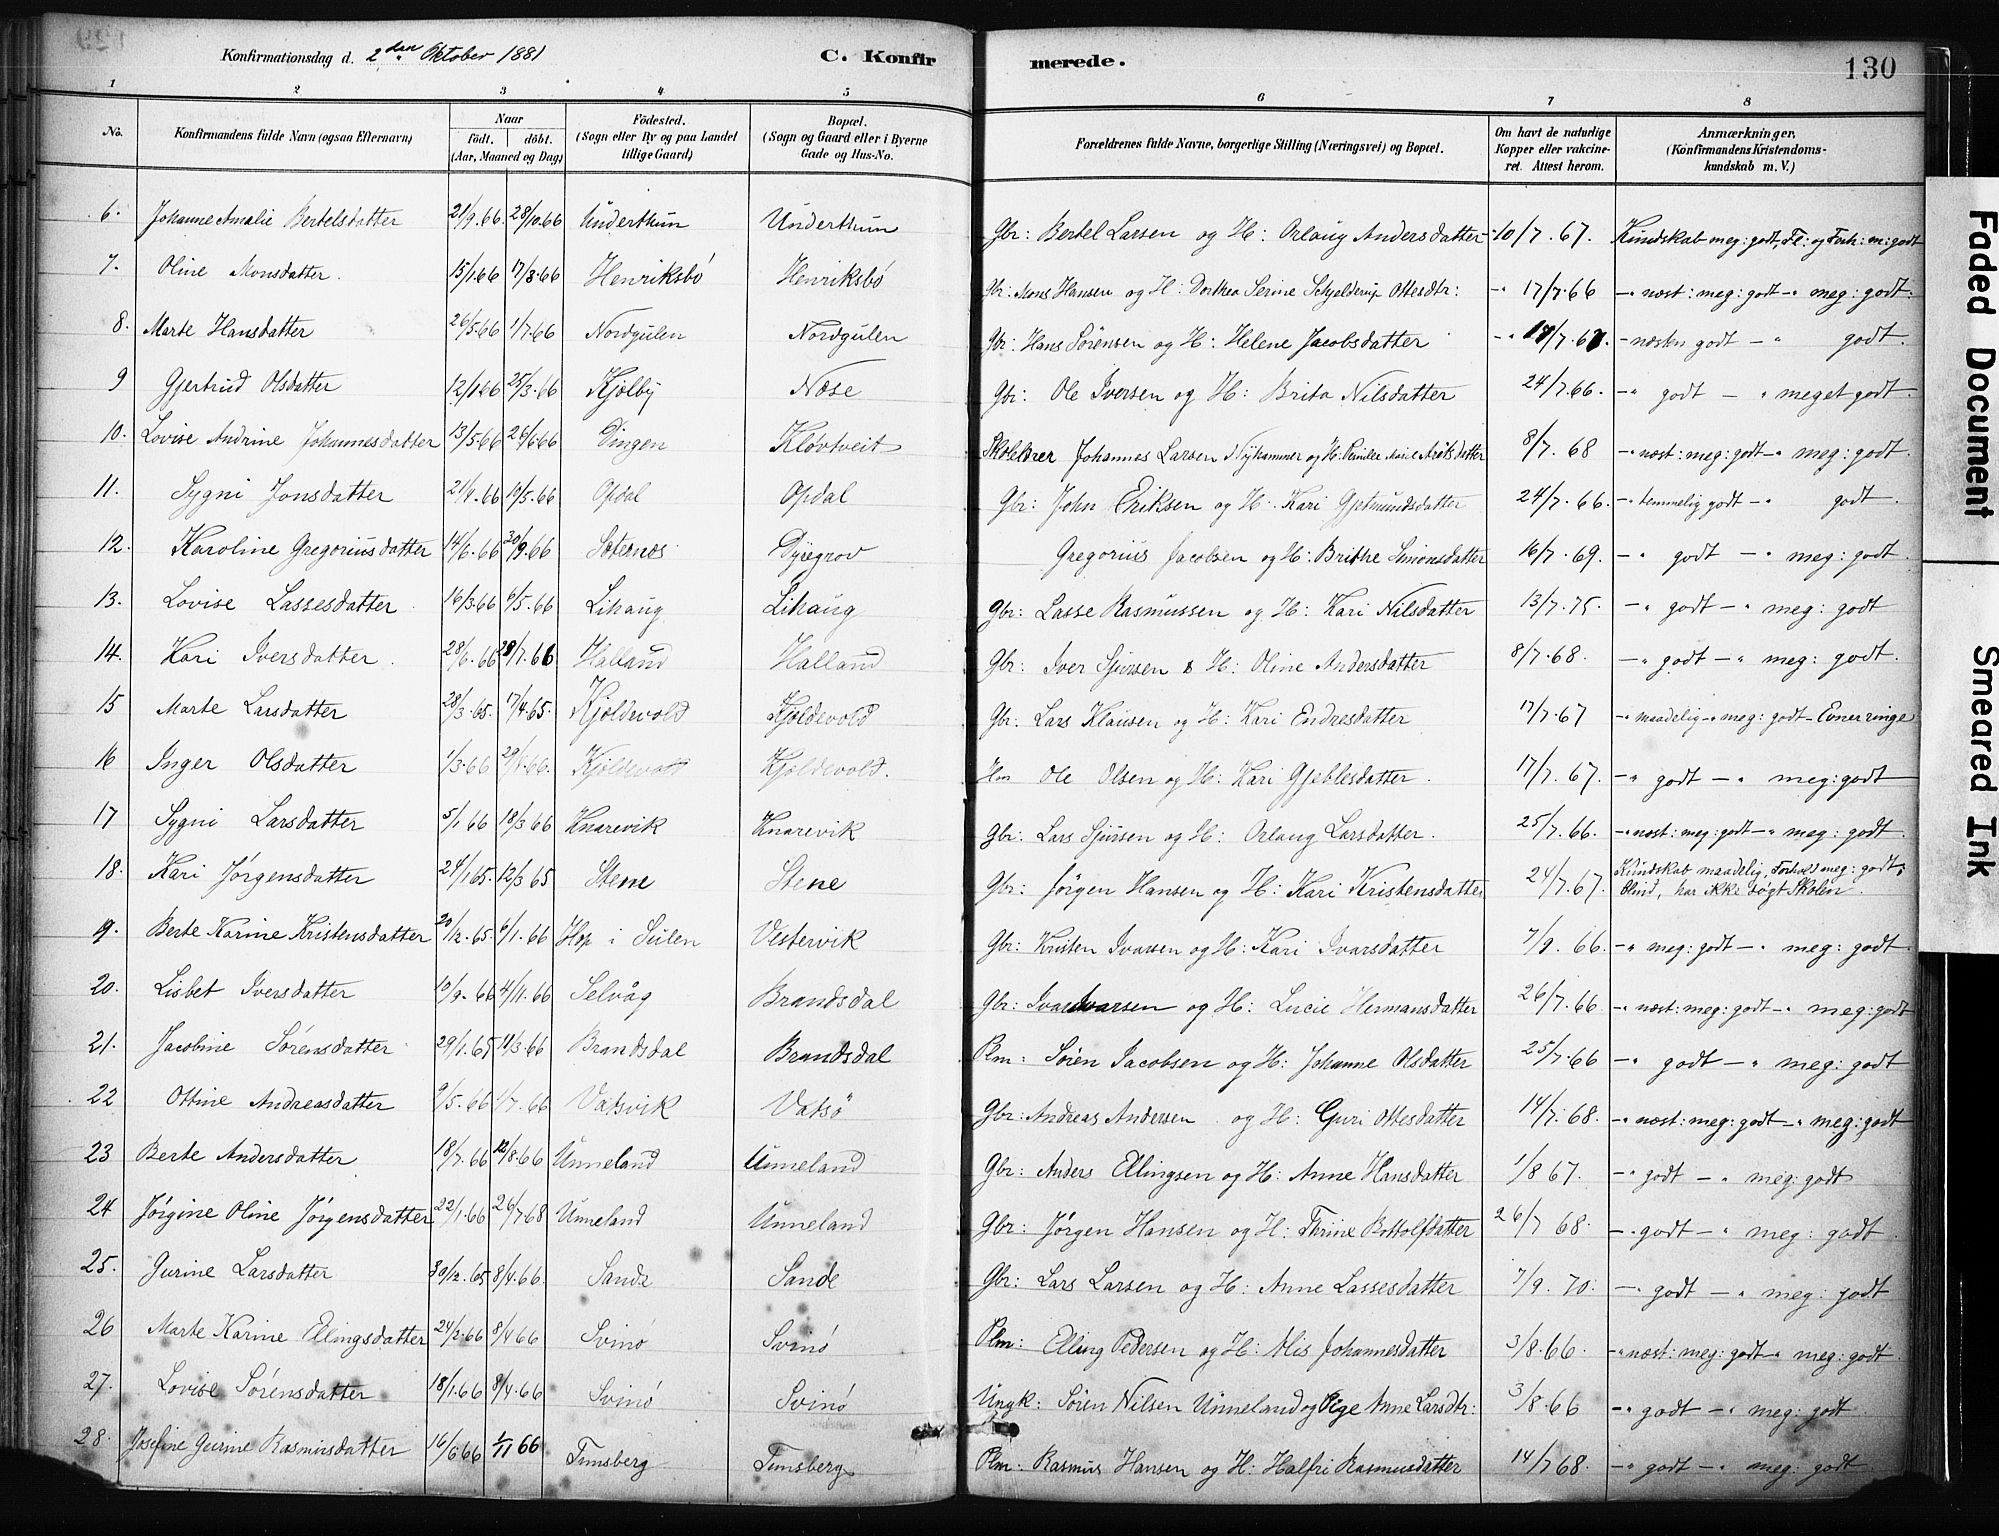 Konfirmationsdag d. 2den Oktober 1881 C. Konfir merede. 130
1 2 3 4 5 6 7 8
No. Konfirmandens fulde Navn (ogsaa Efternavn) Naar födt. döbt. (Aar, Maaned og Dag) Födested. (Sogn eller By og paa Landet tillige Gaard) Bopæl. (Sogn og Gaard eller i Byerne Gade og Hus-No. Forældrenes fulde Navne, borgerlige Stilling (Næringsvei) og Bopæl. Om havt de naturlige Kopper eller vakcineret. Attest herom. Anmærkninger. (Konfirmandens Kristendomskundskab m. V.)
6. Johanne Amalie Bertelsdatter 21/9.66 28/10.66 Underthun Underthun Gbr: Bertel Larsen og H: Orlaug Andersdatter 10/7.67. Kundskab meg: godt, Fl: og Forh: m: godt
7. Oline Monsdatter 15/1.66 17/3.66 Henriksbö Henriksbö Gbr: Mons Hansen og H: Dorthea Serine Schjelderup Ottesdtr: 17/7.66 -" næst: meg: godt -" meg: godt.
8. Marte Hansdatter 26/5.66 1/7.66 Nordgulen Nordgulen Gbr: Hans Sörensen og H: Helene Jacobsdatter - næsten godt -" godt.
9 Gjertrud Olsdatter 12/1.66 25/3.66 Kjölby Næse Gbr: Ole Iversen og H: Brita Nilsdatter 24/7.66. -" godt -" meget godt.
10. Lovise Andrine Johannesdatter 13/5.66 26/6.66 Dingen Klövtveit Skolelærer Johannes Larsen Nyhammer og H: Pernille Marie 8/7.68 -" næst: meg: godt -" meg: godt.
11. Sygni Jonsdatter 21/4.66 10/5.66 Opdal Opdal Gbr: John Eriksen og H: Kari Gjetmundsdatter 24/7.66. -" temmelig godt -" godt.
12. Karoline Gregoriusdatter 14/6.66 30/9.66 Sæternæs Dyregrov Gregorius Jacobsen og H: Brithe Simonsdatter 16/7.69. -" godt -" meg: godt.
13. Lovise Lassesdatter 16/3.66 6/5.66 Lihaug Lihaug Gbr: Lasse Rasmussen og H: Kari Nilsdatter 13/7.75. -" godt -" meg: godt
14. Kari Iversdatter 28/6.66 28/7.66 Halland Halland Gbr: Iver Sjursen & H: Oline Andersdatter 8/7.68. -" godt -" meg: godt.
15 Marte Larsdatter 28/3.65. 17/4.65. Kjoldevold Kjoldevold Gbr: Lars Klausen og H: Kari Endresdatter 17/7.67 -" maadelig -" meg: godt - Evner ringe
16 Inger Olsdatter 1/3.66 Kjoldevold Kjoldevold. Hm Ole Olsen og H: Kari Gjeblesdatter. 17/7.67. -" godt -" meg: godt
17 Sygni Larsdatter 5/1 66 18/3 66 Knarevik Knarevik Gbr: Lars Sjursen og H: Orlaug Larsdatter. 25/7.66. -" næst: meg: godt -" meg: godt.
18. Kari Jörgensdatter 24/1.65. 12/3 65 Stene Stene Gbr: Jörgen Hansen og H: Kari Kristensdatter 24/7.67. Kundskab maadelig, Forhold meg: godt. Blind, har ikke sögt Skolen.
19. Berte Karine Kristensdatter 20/12.65. 6/1.66 Hop i Sulen Vestervik Gbr: Kristen Ivarsen og H: Kari Ivarsdatter 7/9.66. -" meg: godt -" meg: godt.
20. Lisbet Iversdatter 10/9.66 4/11.66 Selvåg Brandsdal Gbr: Ivar Ivarsen og H: Lucie Hermansdatter 26/7.66 -" næst: meg: godt -" meg: godt
21. Jacobine Sörensdatter 29/1.65 11/3.66 Brandsdal Brandsdal Plm: Sören Jacobsen og H: Johanne Olsdatter 25/7.66 -" godt -" meg: godt
22 Ottine Andreasdatter 9/5.66 1/7.66 Vatsvik Vatsö Gbr: Andreas Andersen og H: Guri Ottesdatter 14/7.68. -" næst: meg: godt -" meg: godt
23 Berte Andersdatter 18/7.66 12/8.66 Unneland Unneland Gbr: Anders Ellingsen og H: Anne Hansdatter 1/8 67. -" godt -" meg: godt
24 Jörgine Oline Jörgensdatter 22/1.66 26/7.68 Unneland Unneland Gbr: Jörgen Hansen og H: Thrine Bottolfsdatter 26/7 68. -" godt -" meg: godt.
25. Gurine Larsdatter 30/12.65 8/4.66. Sande Sande Gbr: Lars Larsen og H: Anne Lassesdatter 7/9.70. -" godt -" meg: godt
26 Marte Karine Ellingsdatter 24/2.66 8/4 66 Svinö Svinö Plm: Elling Pedersen og H: Alis Johannesdatter 3/8.66. -" næst: meg: godt -" meg: godt.
27. Lovise Sörensdatter 18/1.66 8/4.66 Svinö Svinö Ungk: Sören Nilsen Unneland og Pige Anne Larsdtr: 3/8.66 -" godt -" meg: godt
28. Josefine Gurine Rasmusdatter 16/6 66 1/11 66 Tunsberg Tunsberg Plm: Rasmus Hansen og H: Halfri Rasmusdatter 14/7 68. -" godt -" meg: godt
Faded Document
Smeared Ink